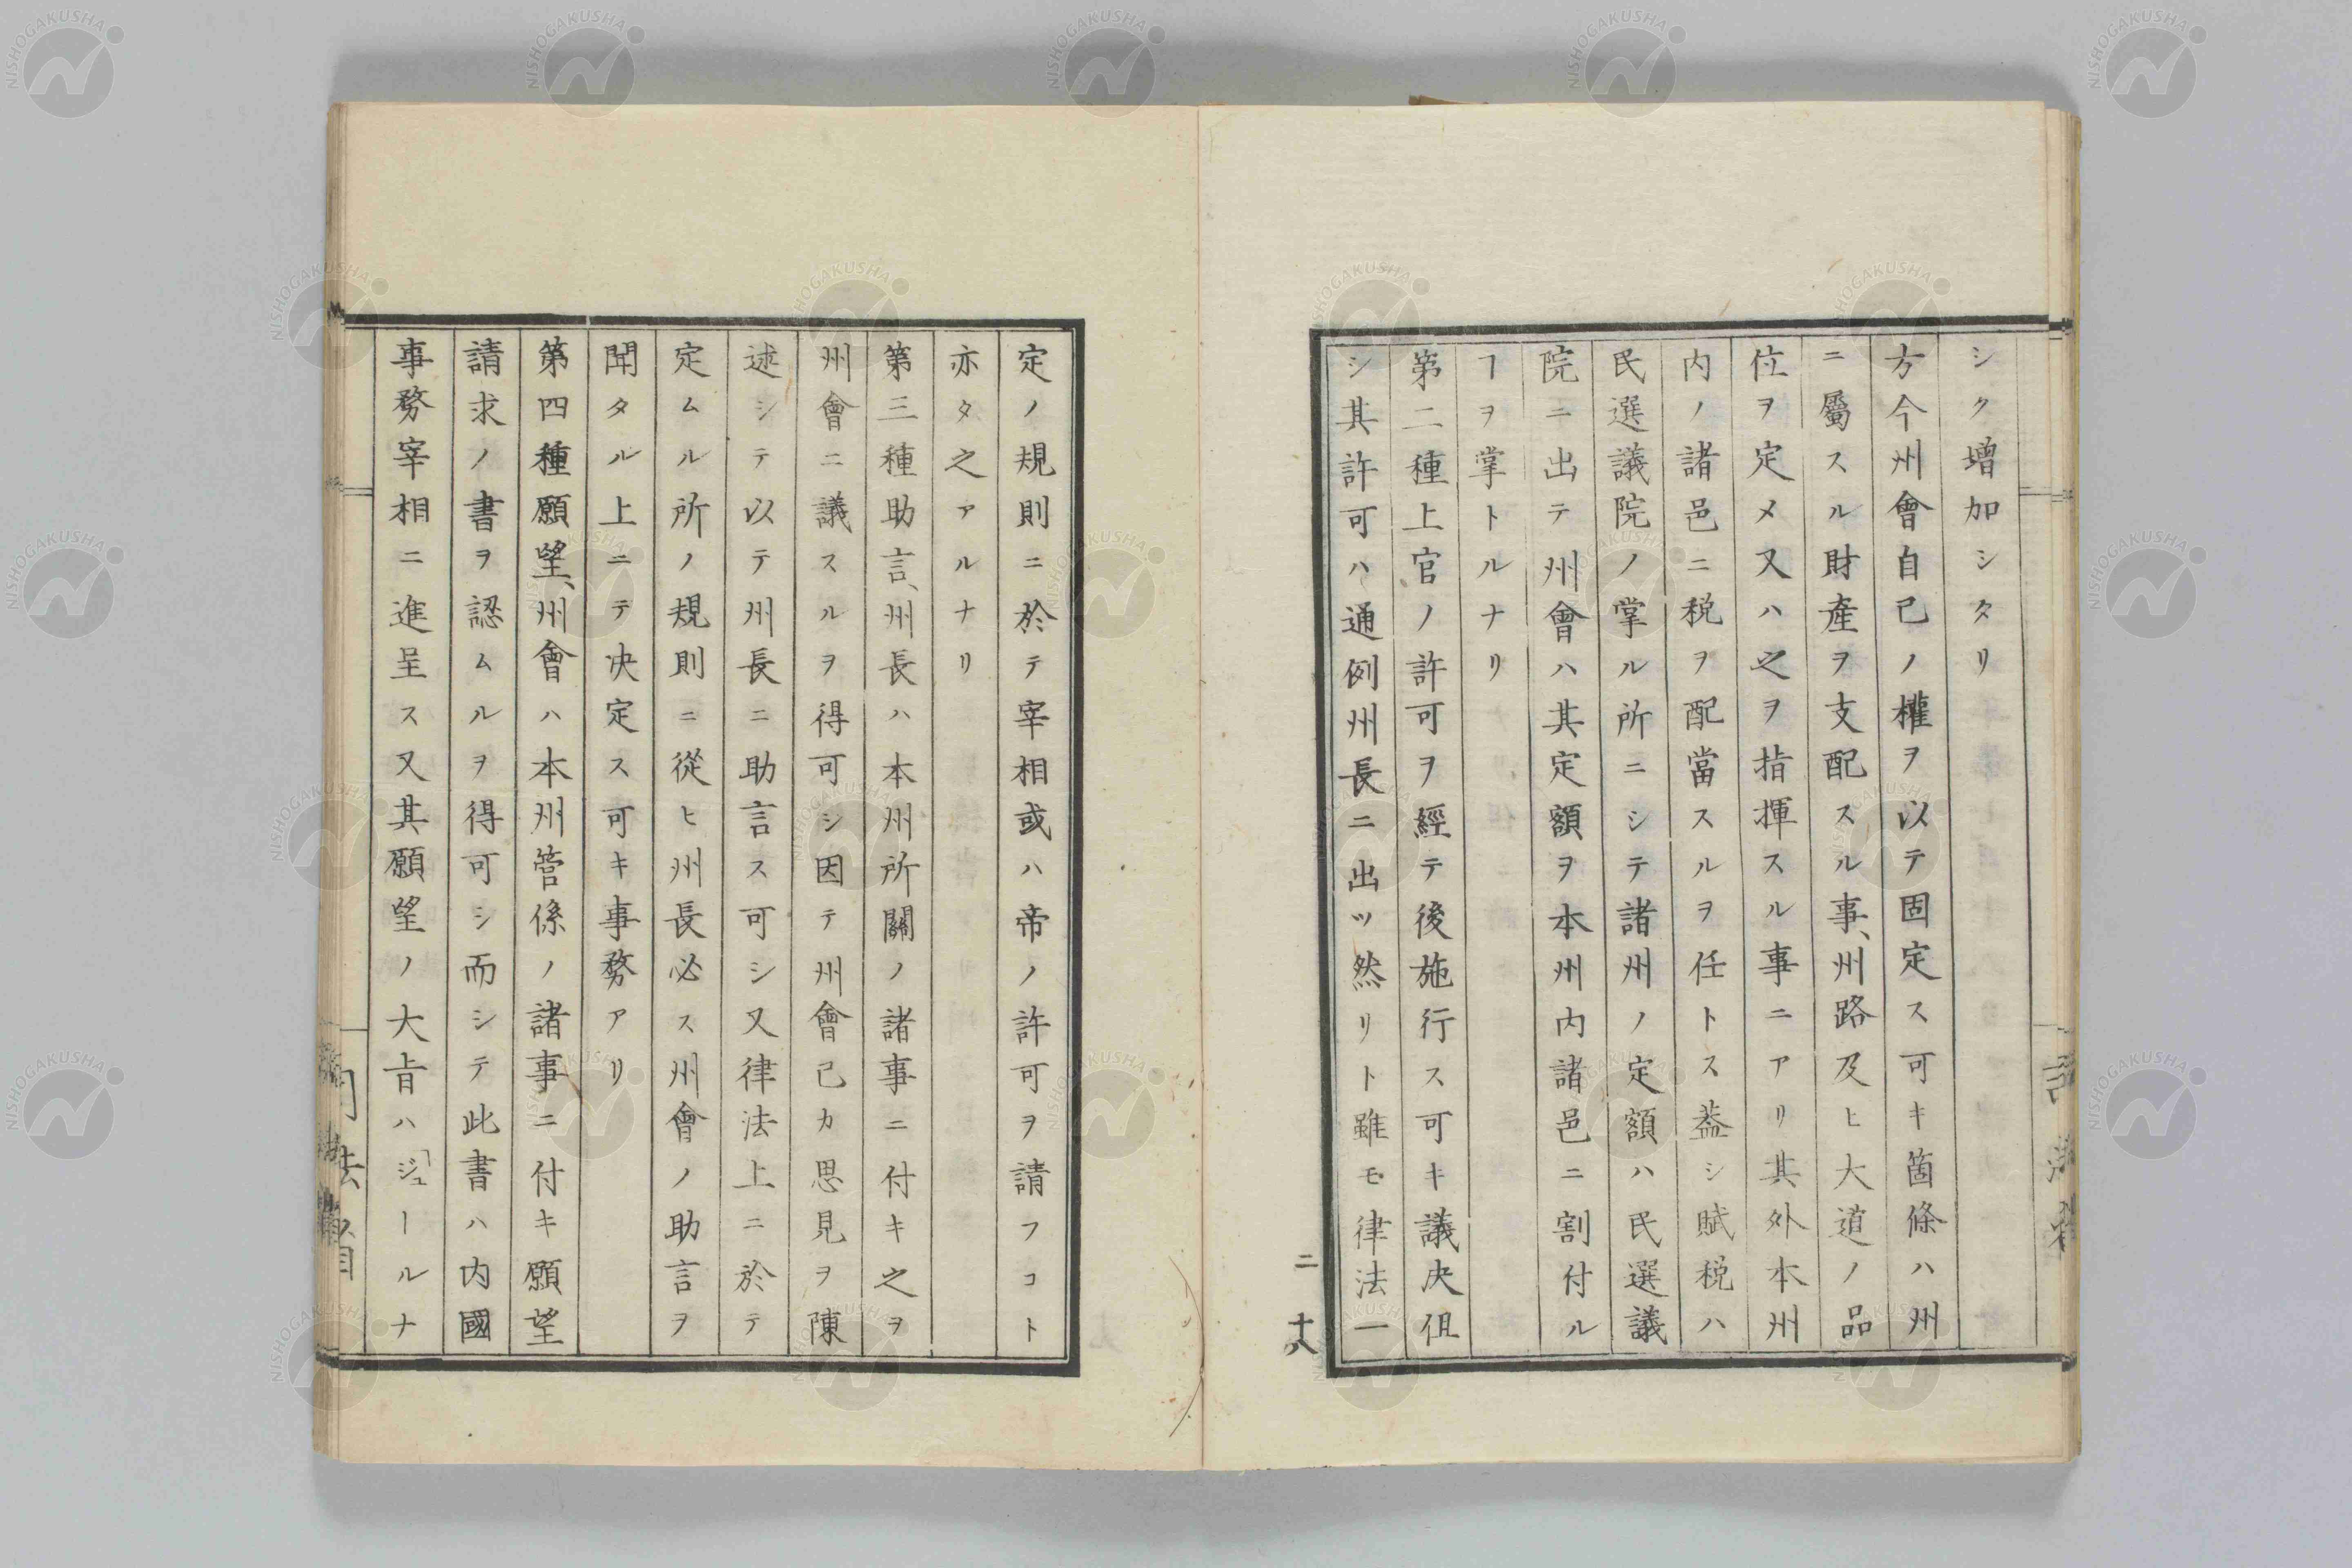 シク增加シタリ
方今州會自己ノ權ヲ以テ固定ス可キ箇條ハ州
ニ屬スル財產ヲ支配スル事、州路及ヒ大道ノ品
位ヲ定メ又ハ之ヲ指揮スル事ニアリ其外本州
内ノ諸邑ニ税ヲ配當スルヲ任トス葢シ賦税ハ
民選議院ノ掌ル所ニシテ諸州ノ定額ハ民選議
院ニ出テ州會ハ其定額ヲ本州内諸邑ニ割付ル
ヿヲ掌トルナリ
第二種上官ノ許可ヲ經テ後施行ス可キ議决但
シ其許可ハ通例州長ニ出ツ然リト雖モ律法一
二 十八
定ノ規則ニ於テ宰相或ハ帝ノ許可ヲ請フコト
亦タ之アルナリ
第三種助言、州長ハ本州所關ノ諸事ニ付キ之ヲ
州會ニ議スルヲ得可シ因テ州會己カ思見ヲ陳
述シテ以テ州長ニ助言ス可シ又律法上ニ於テ
定ムル所ノ規則ニ從ヒ州長必ス州會ノ助言ヲ
聞タル上ニテ决定ス可キ事務アリ
第四種願望、州會ハ本州管係ノ諸事ニ付キ願望
請求ノ書ヲ認ムルヲ得可シ而シテ此書ハ内國
事務宰相ニ進呈ス又其願望ノ大旨ハ「ジュールナ
NISHOGAKUSHA